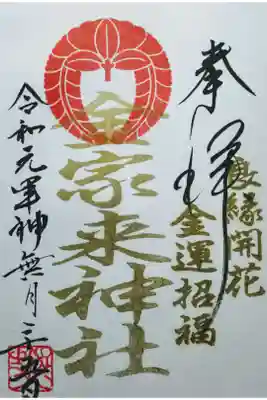 奉拝
縁開花
金運招福
金家来神社
令和元年神無月